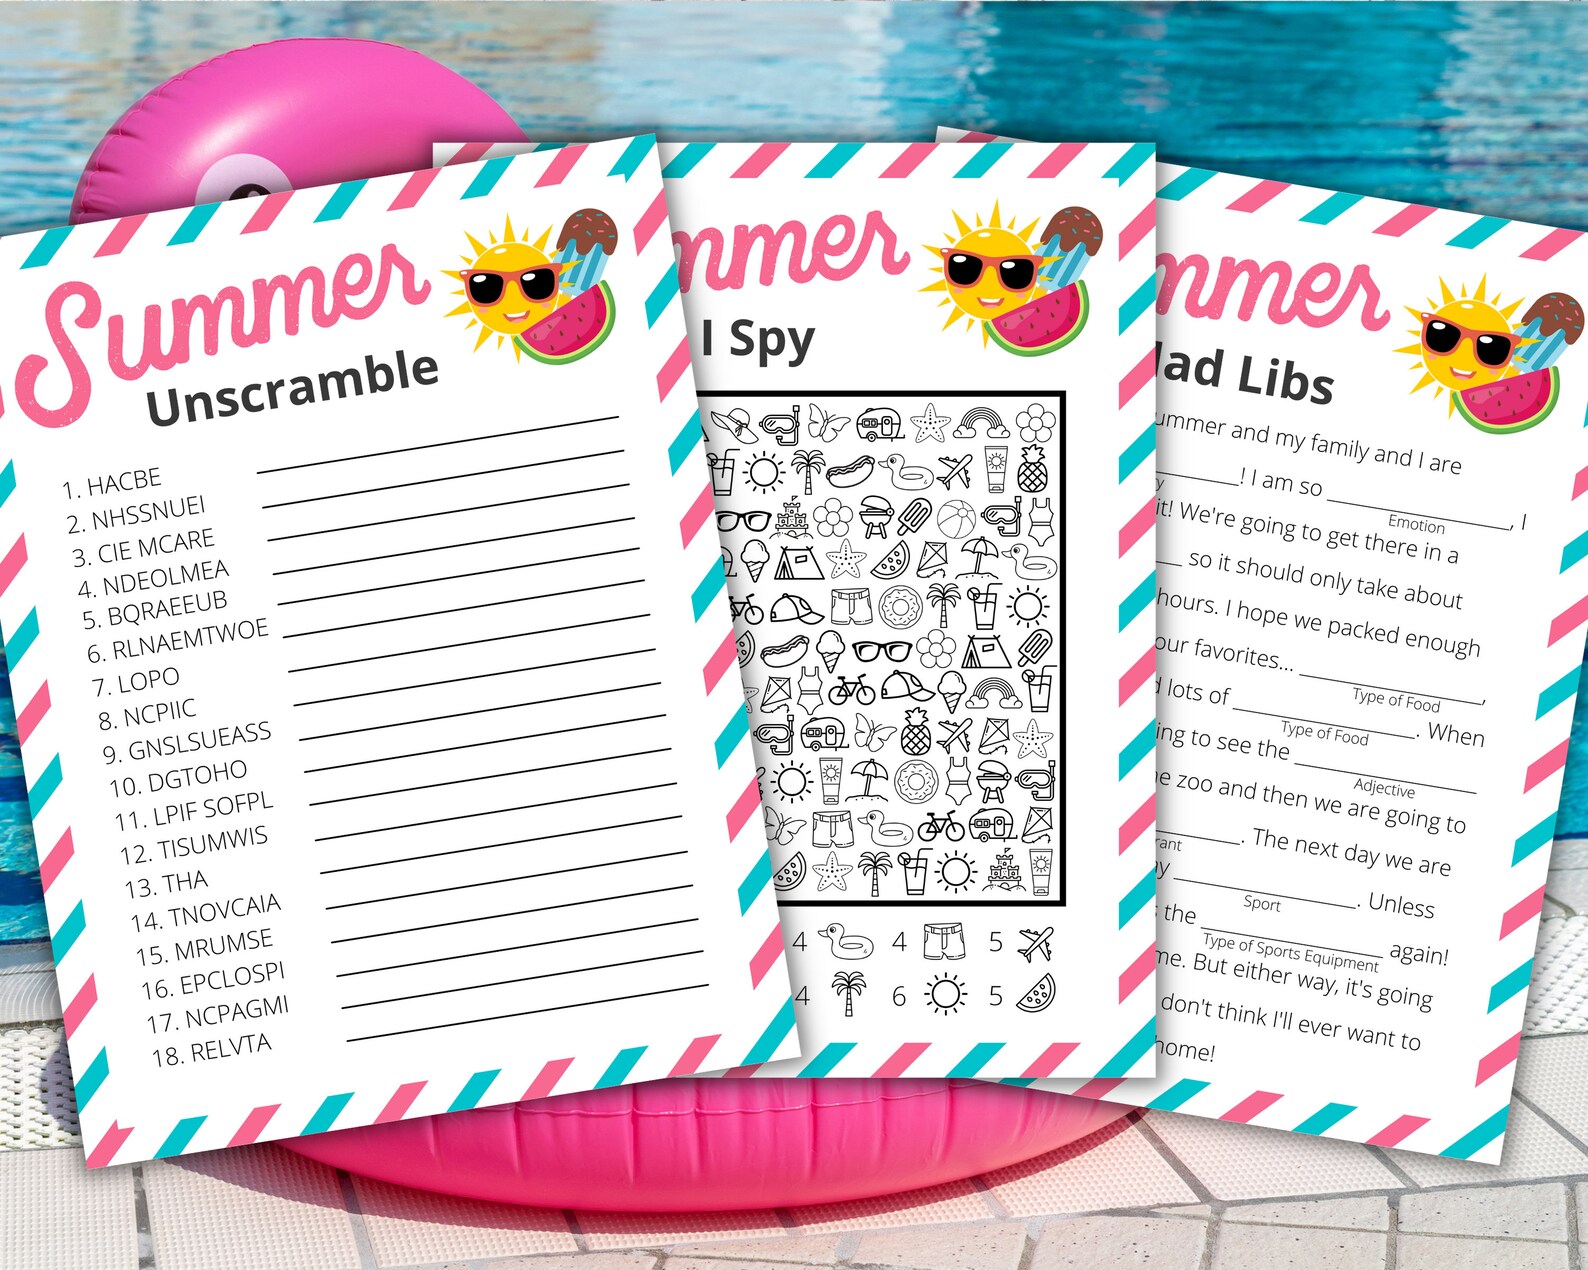 Summer
Unscramble
1. HACBE
2. NHSSNUEI
3. CIE MCARE
4. NDEOLMEA
5. BQRAEEUB
6. RLNAEMTWOE
7. LOPO
8. NCPIIC
9. GNSLSUEASS
10. DGTOHO
11. LPIF SOFPL
12. TISUMWIS
13. THA
14. TNOVCAIA
15. MRUMSE
16. EPCLOSPI
17. NCPAGMI
18. RELVTA
mmer
I Spy
4 4 5
4 6 5
mmer
ad Libs
ummer and my family and I are
! I am so , I
y Emotion
it! We're going to get there in a
so it should only take about
hours. I hope we packed enough
our favorites... ,
Type of Food
d lots of . When
Type of Food
ing to see the
Adjective
e zoo and then we are going to
. The next day we are
rant
y . Unless
Sport
the again!
Type of Sports Equipment
me. But either way, it's going
don't think I'll ever want to
home!